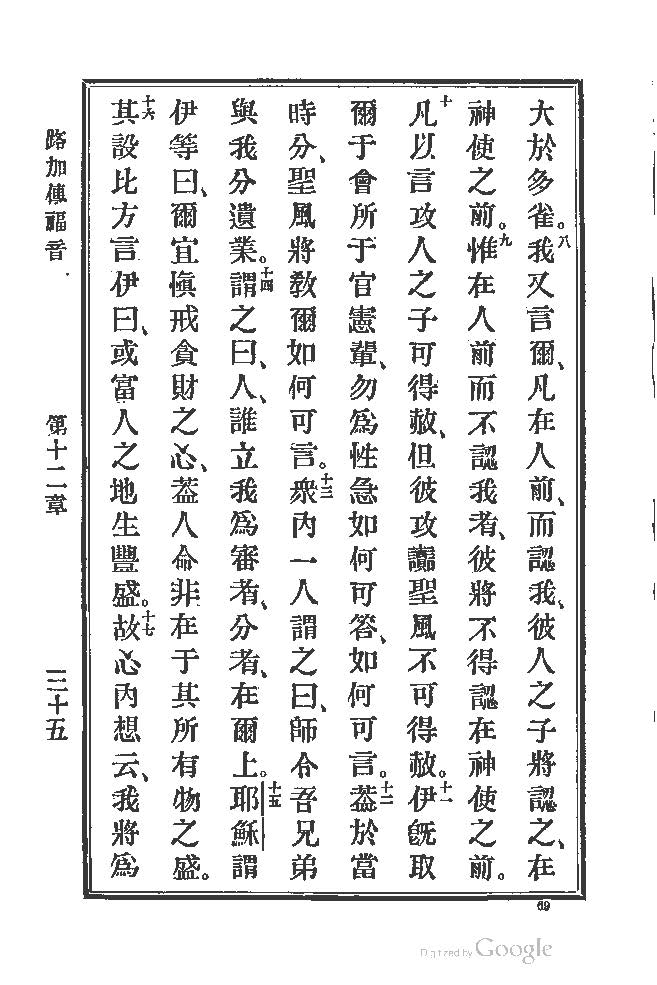 大於多雀。八我又言爾、凡在人前、而認我、彼人之子將認之、在
神使之前。九惟在人前而不認我者、彼將不得認在神使之前。
十凡以言攻人之子可得赦、但彼攻讟聖風不可得赦。十一伊旣取
爾于會所于官憲輩、勿爲性急如何可答、如何可言。十二葢於當
時分、聖風將敎爾如何可言。十三衆內一人謂之曰、師令吾兄弟
與我分遺業。十四謂之曰、人、誰立我爲審者、分者、在爾上。十五耶穌謂
伊等曰、爾宜愼戒貪財之心、葢人命非在于其所有物之盛。
十六其設比方言伊曰、或富人之地生豐盛。十七故心內想云、我將爲
路加傳福音
第十二章
三十五
69
Digitized by Google